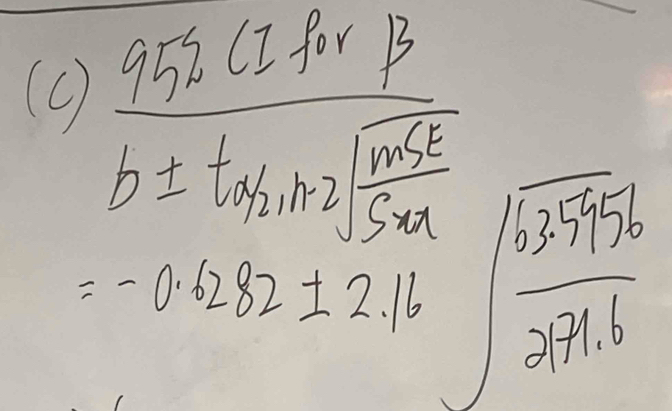 (c) 95% CI for β
b ± t α/2, n-2 √(MSE / Sxx)
= -0.6282 ± 2.16 √(63.5956 / 2171.6)